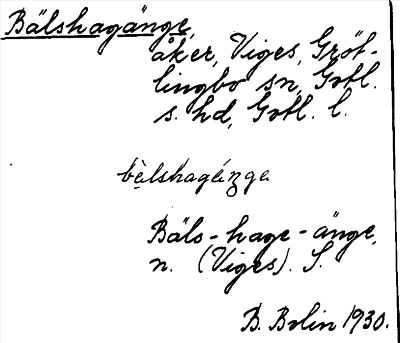 Bälshagänge,
åker, Viges, Gröt-
lingbo sn, Gotl.
s. hd, Gotl. l.
bèlshagéŋge
Bäls-hage-änge,
n. (Viges). S.
B. Bolin 1930.